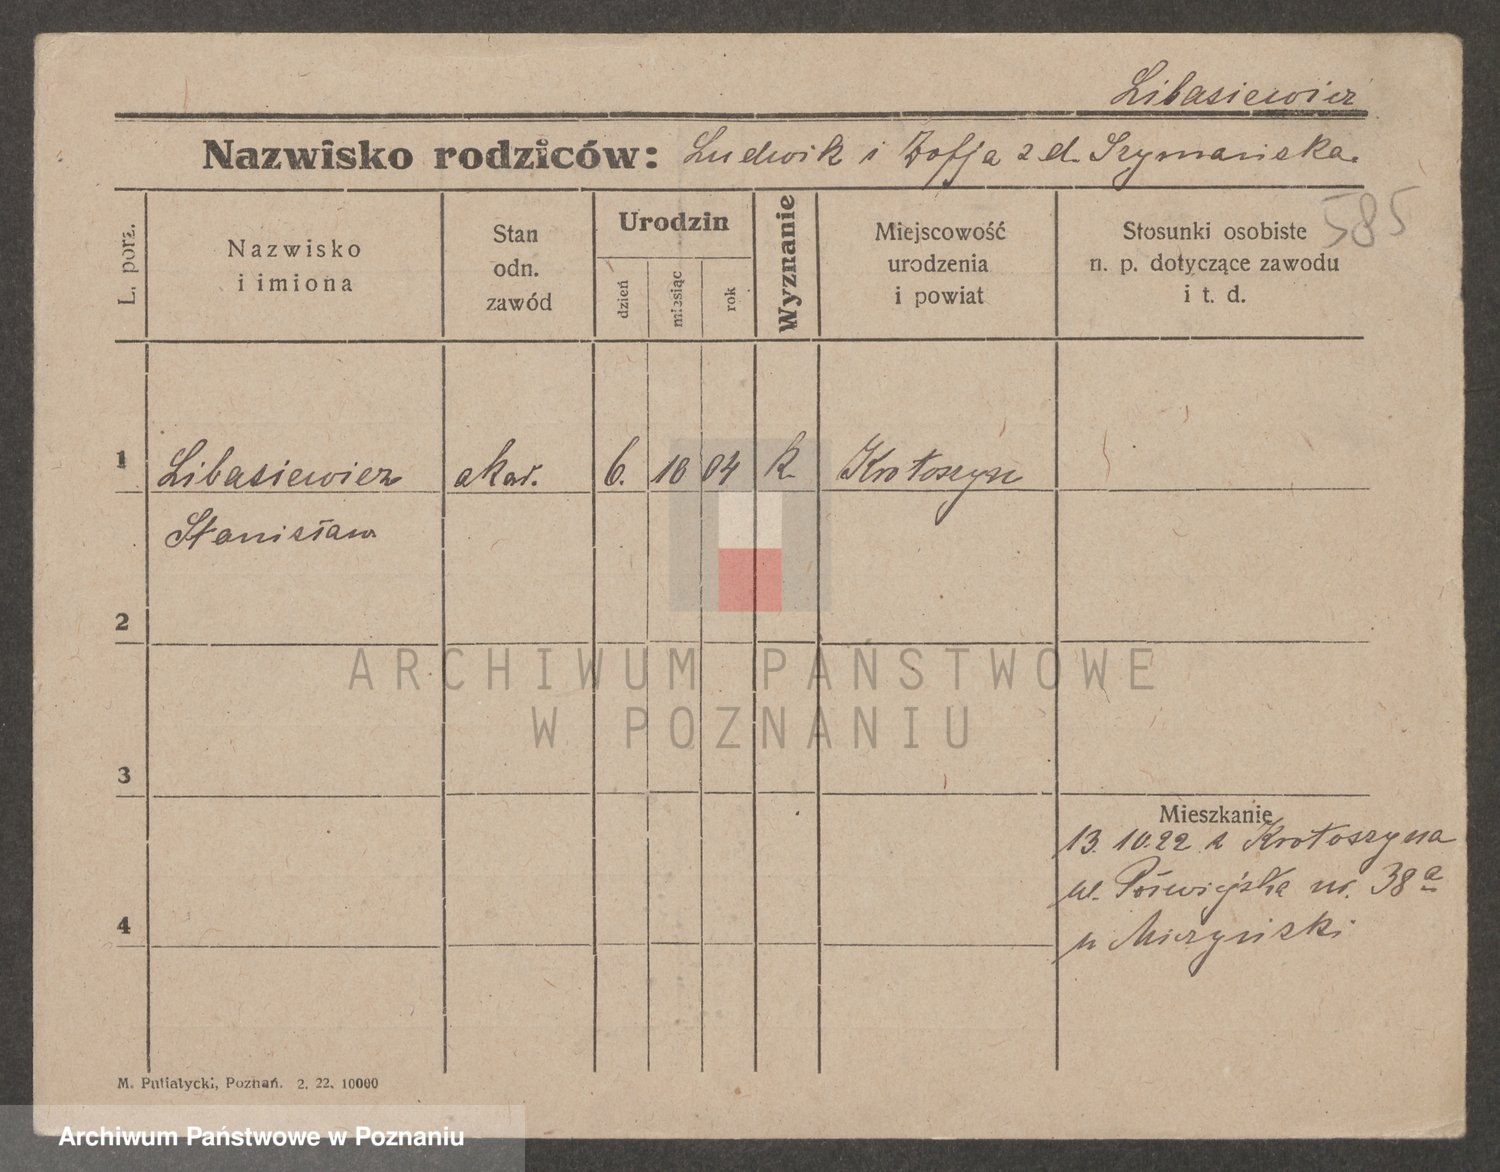 Libasiewicz
Nazwisko rodziców: Ludwik i Zofja z d. Szymańska.
585
L. porz.
Nazwisko
i imiona
Stan
odn.
zawód
Urodzin
dzień
miesiąc
rok
Wyznanie
Miejscowość
urodzenia
i powiat
Stosunki osobiste
n. p. dotyczące zawodu
i t. d.
1 Libasiewicz akad. 6. 10 04 k. Krotoszyn
Stanisław
2
ARCHIWUM PAŃSTWOWE
W POZNANIU
3
Mieszkanie
13. 10. 22 z Krotoszyna
ul. nr. 38a
4
u Mizyński
M. Putiatycki, Poznań. 2. 22. 10000
Archiwum Państwowe w Poznaniu